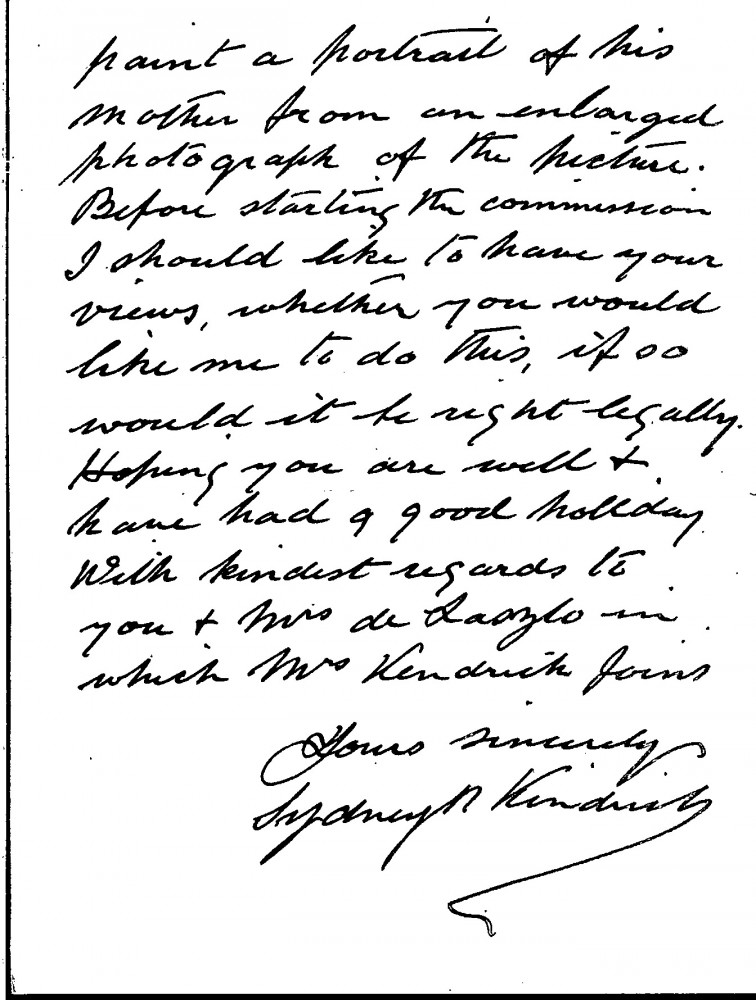 paint a portrait of his
mother from an enlarged
photograph of the picture.
Before starting the commission
I should like to have your
views, whether you would
like me to do this, if so
would it be right legally.
Hoping you are well &
have had a good holiday
With kindest regards to
you & Mrs de Laszlo in
which Mrs Kendrick joins
Yours sincerely
Sydney P Kendrick